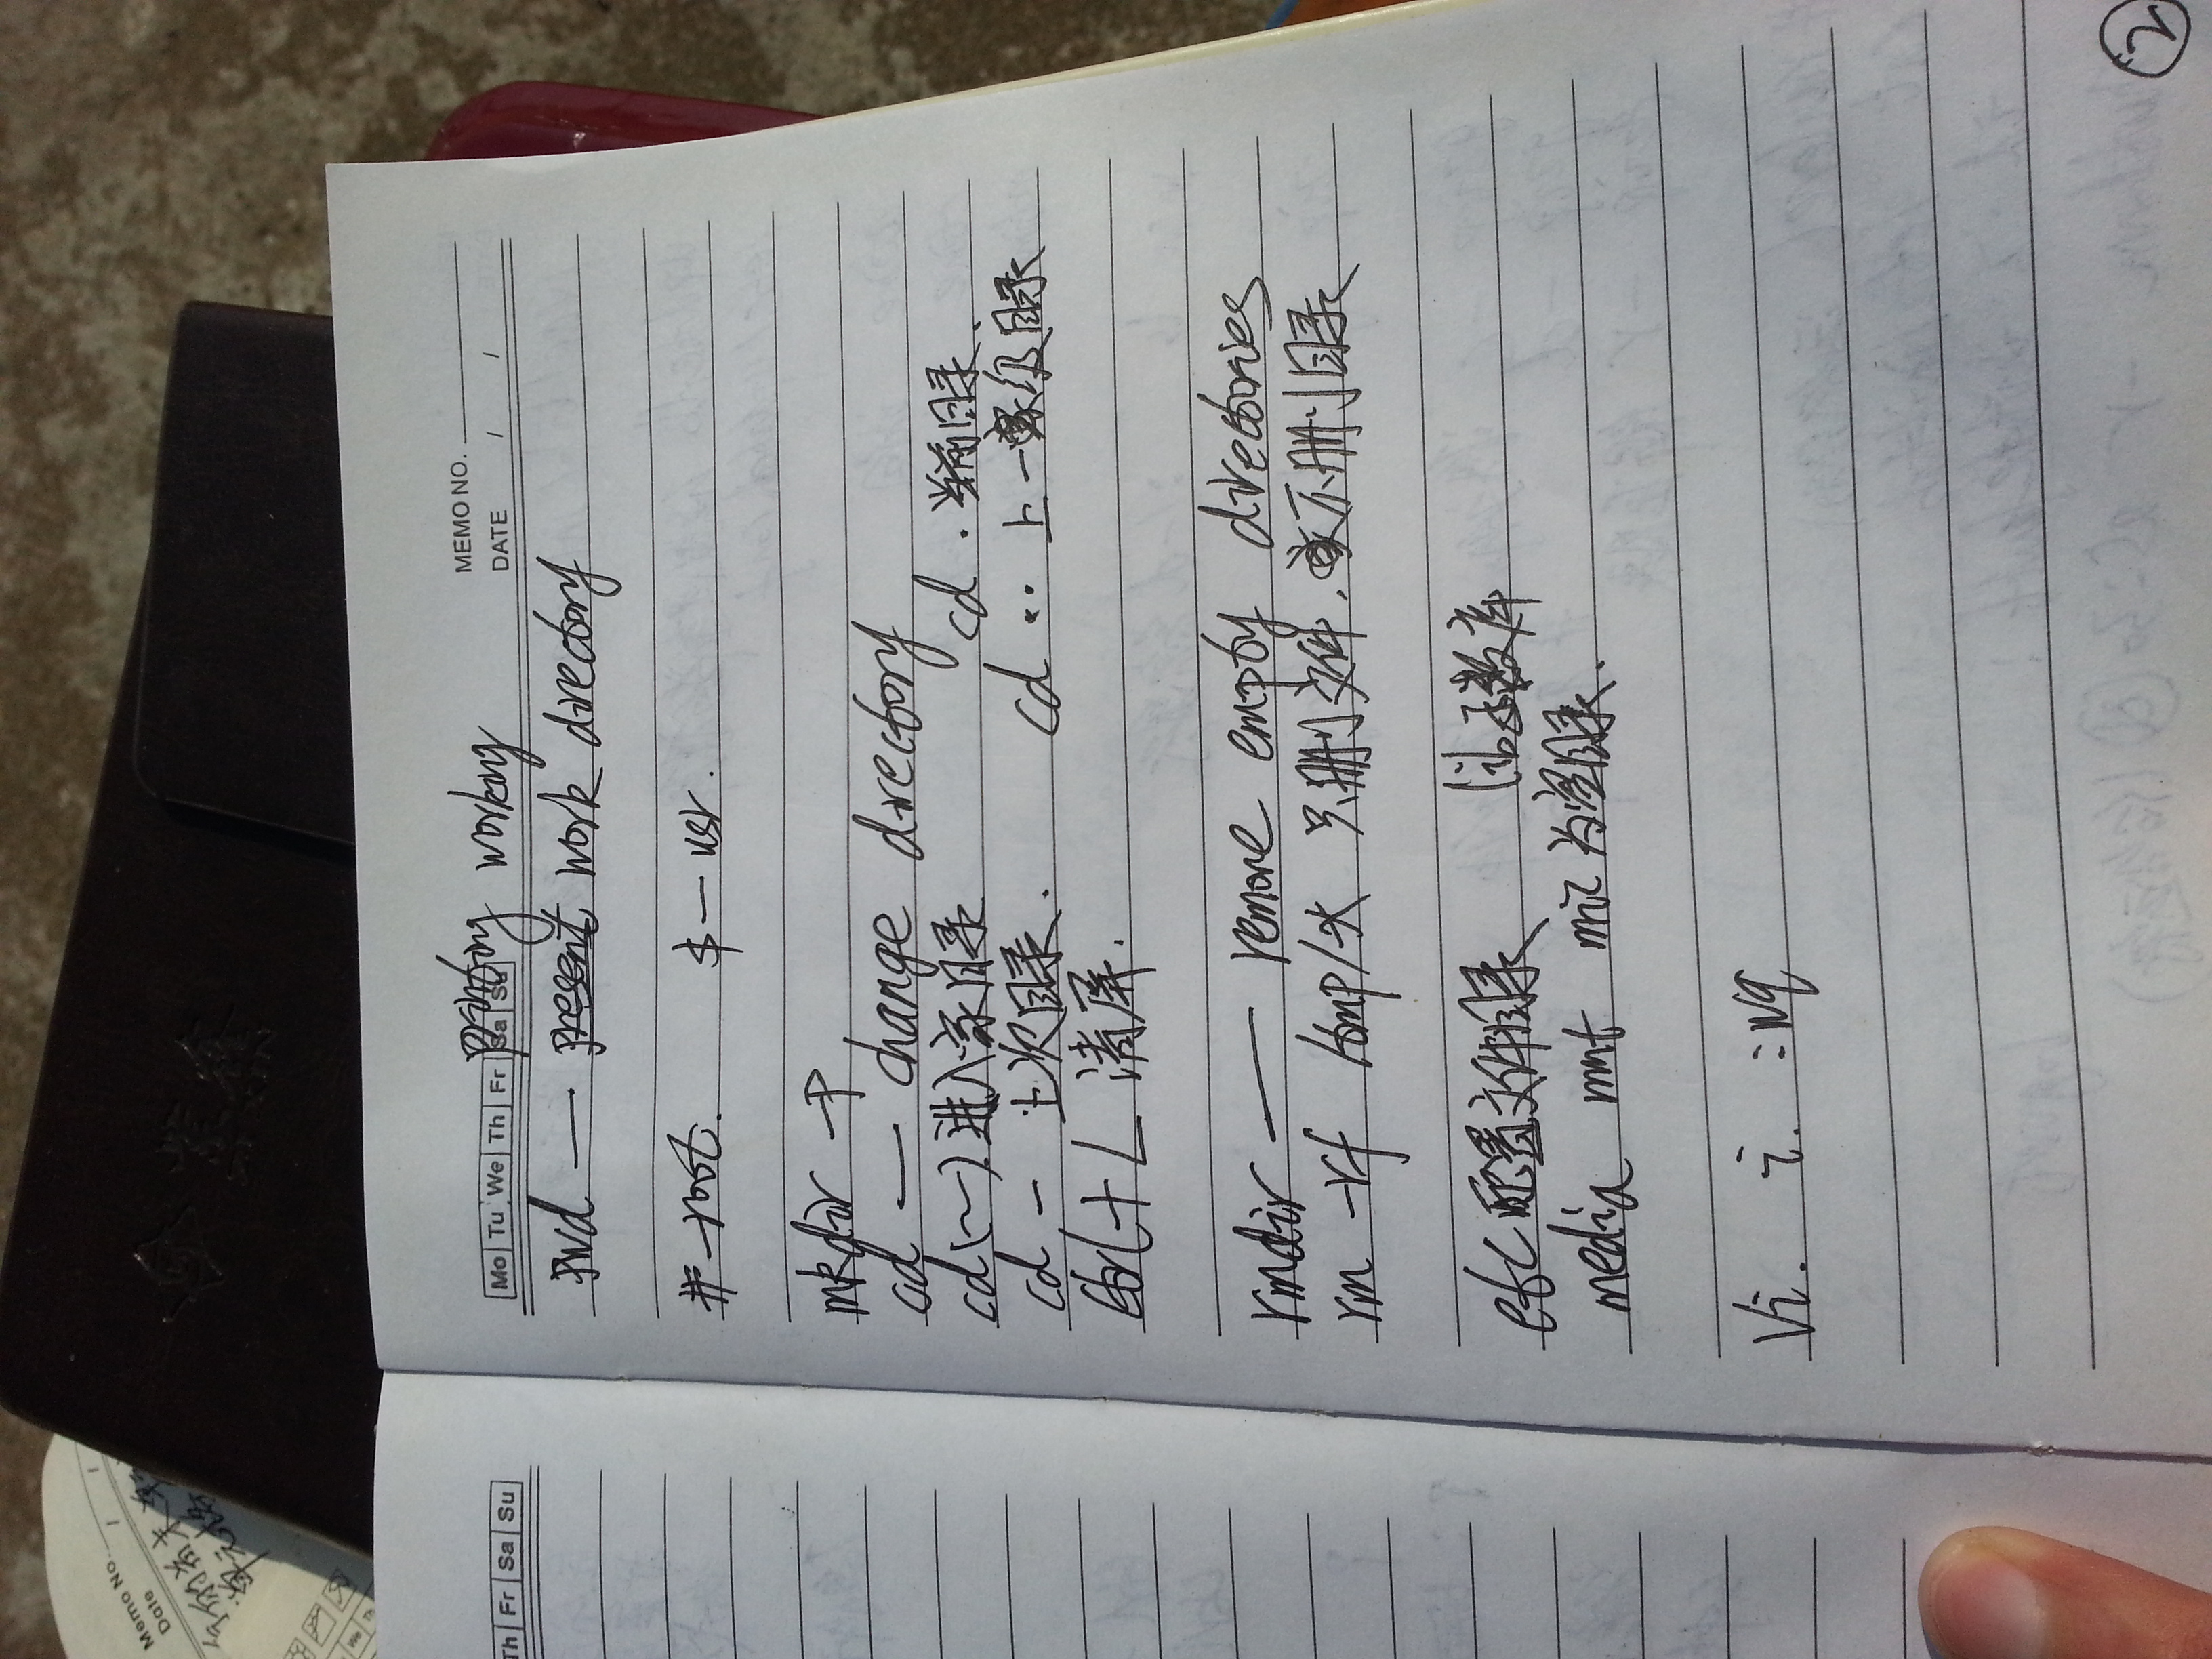 Th Fr Sa Su
MEMO NO.
Mo Tu We Th Fr Sa Su DATE / /
printing working
pwd — present work directory
# - root. $ — usr.
mkdir -p
cd — change directory
cd (~) 进入家目录 cd . 当前目录.
cd - 上次目录. cd .. 上一级目录
ctrl + L 清屏.
rmdir — remove empty directories
rm -rf /tmp/* 只删文件. 不删目录
etc 配置文件目录 lib 函数库
media mnt misc 为空目录.
Vi. i. :wq
2
Memo No.
Date / /
We